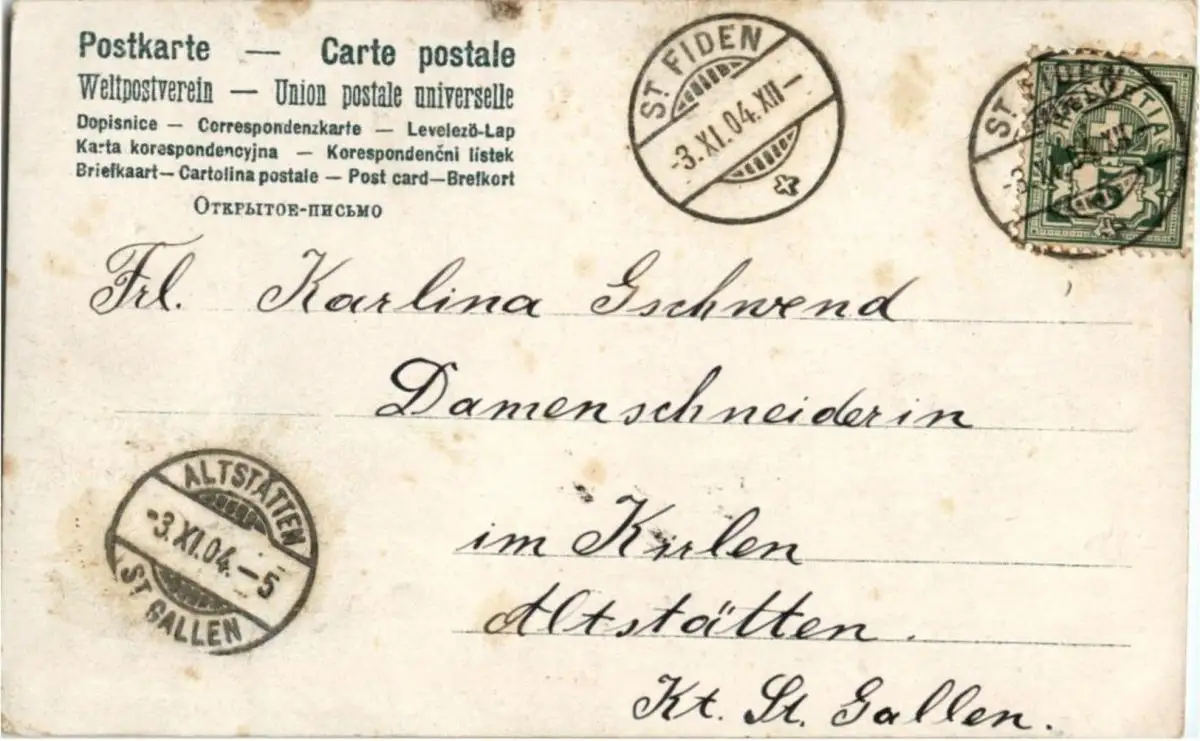 Postkarte — Carte postale
Weltpostverein — Union postale universelle
Dopisnice — Correspondenzkarte — Levelező-Lap
Karta korespondencyjna — Korespondenční lístek
Briefkaart — Cartolina postale — Post card — Brefkort
Открытое-письмо
ST FIDEN
-3.XI.04.XII-
ST FIDEN
-3.XI.04.XII-
HELVETIA
5
Frl. Karlina Gschwend
Damenschneiderin
ALTSTÄTTEN
-3.XI.04.-5
ST GALLEN
im Kirlen
Altstätten.
Kt. St. Gallen.